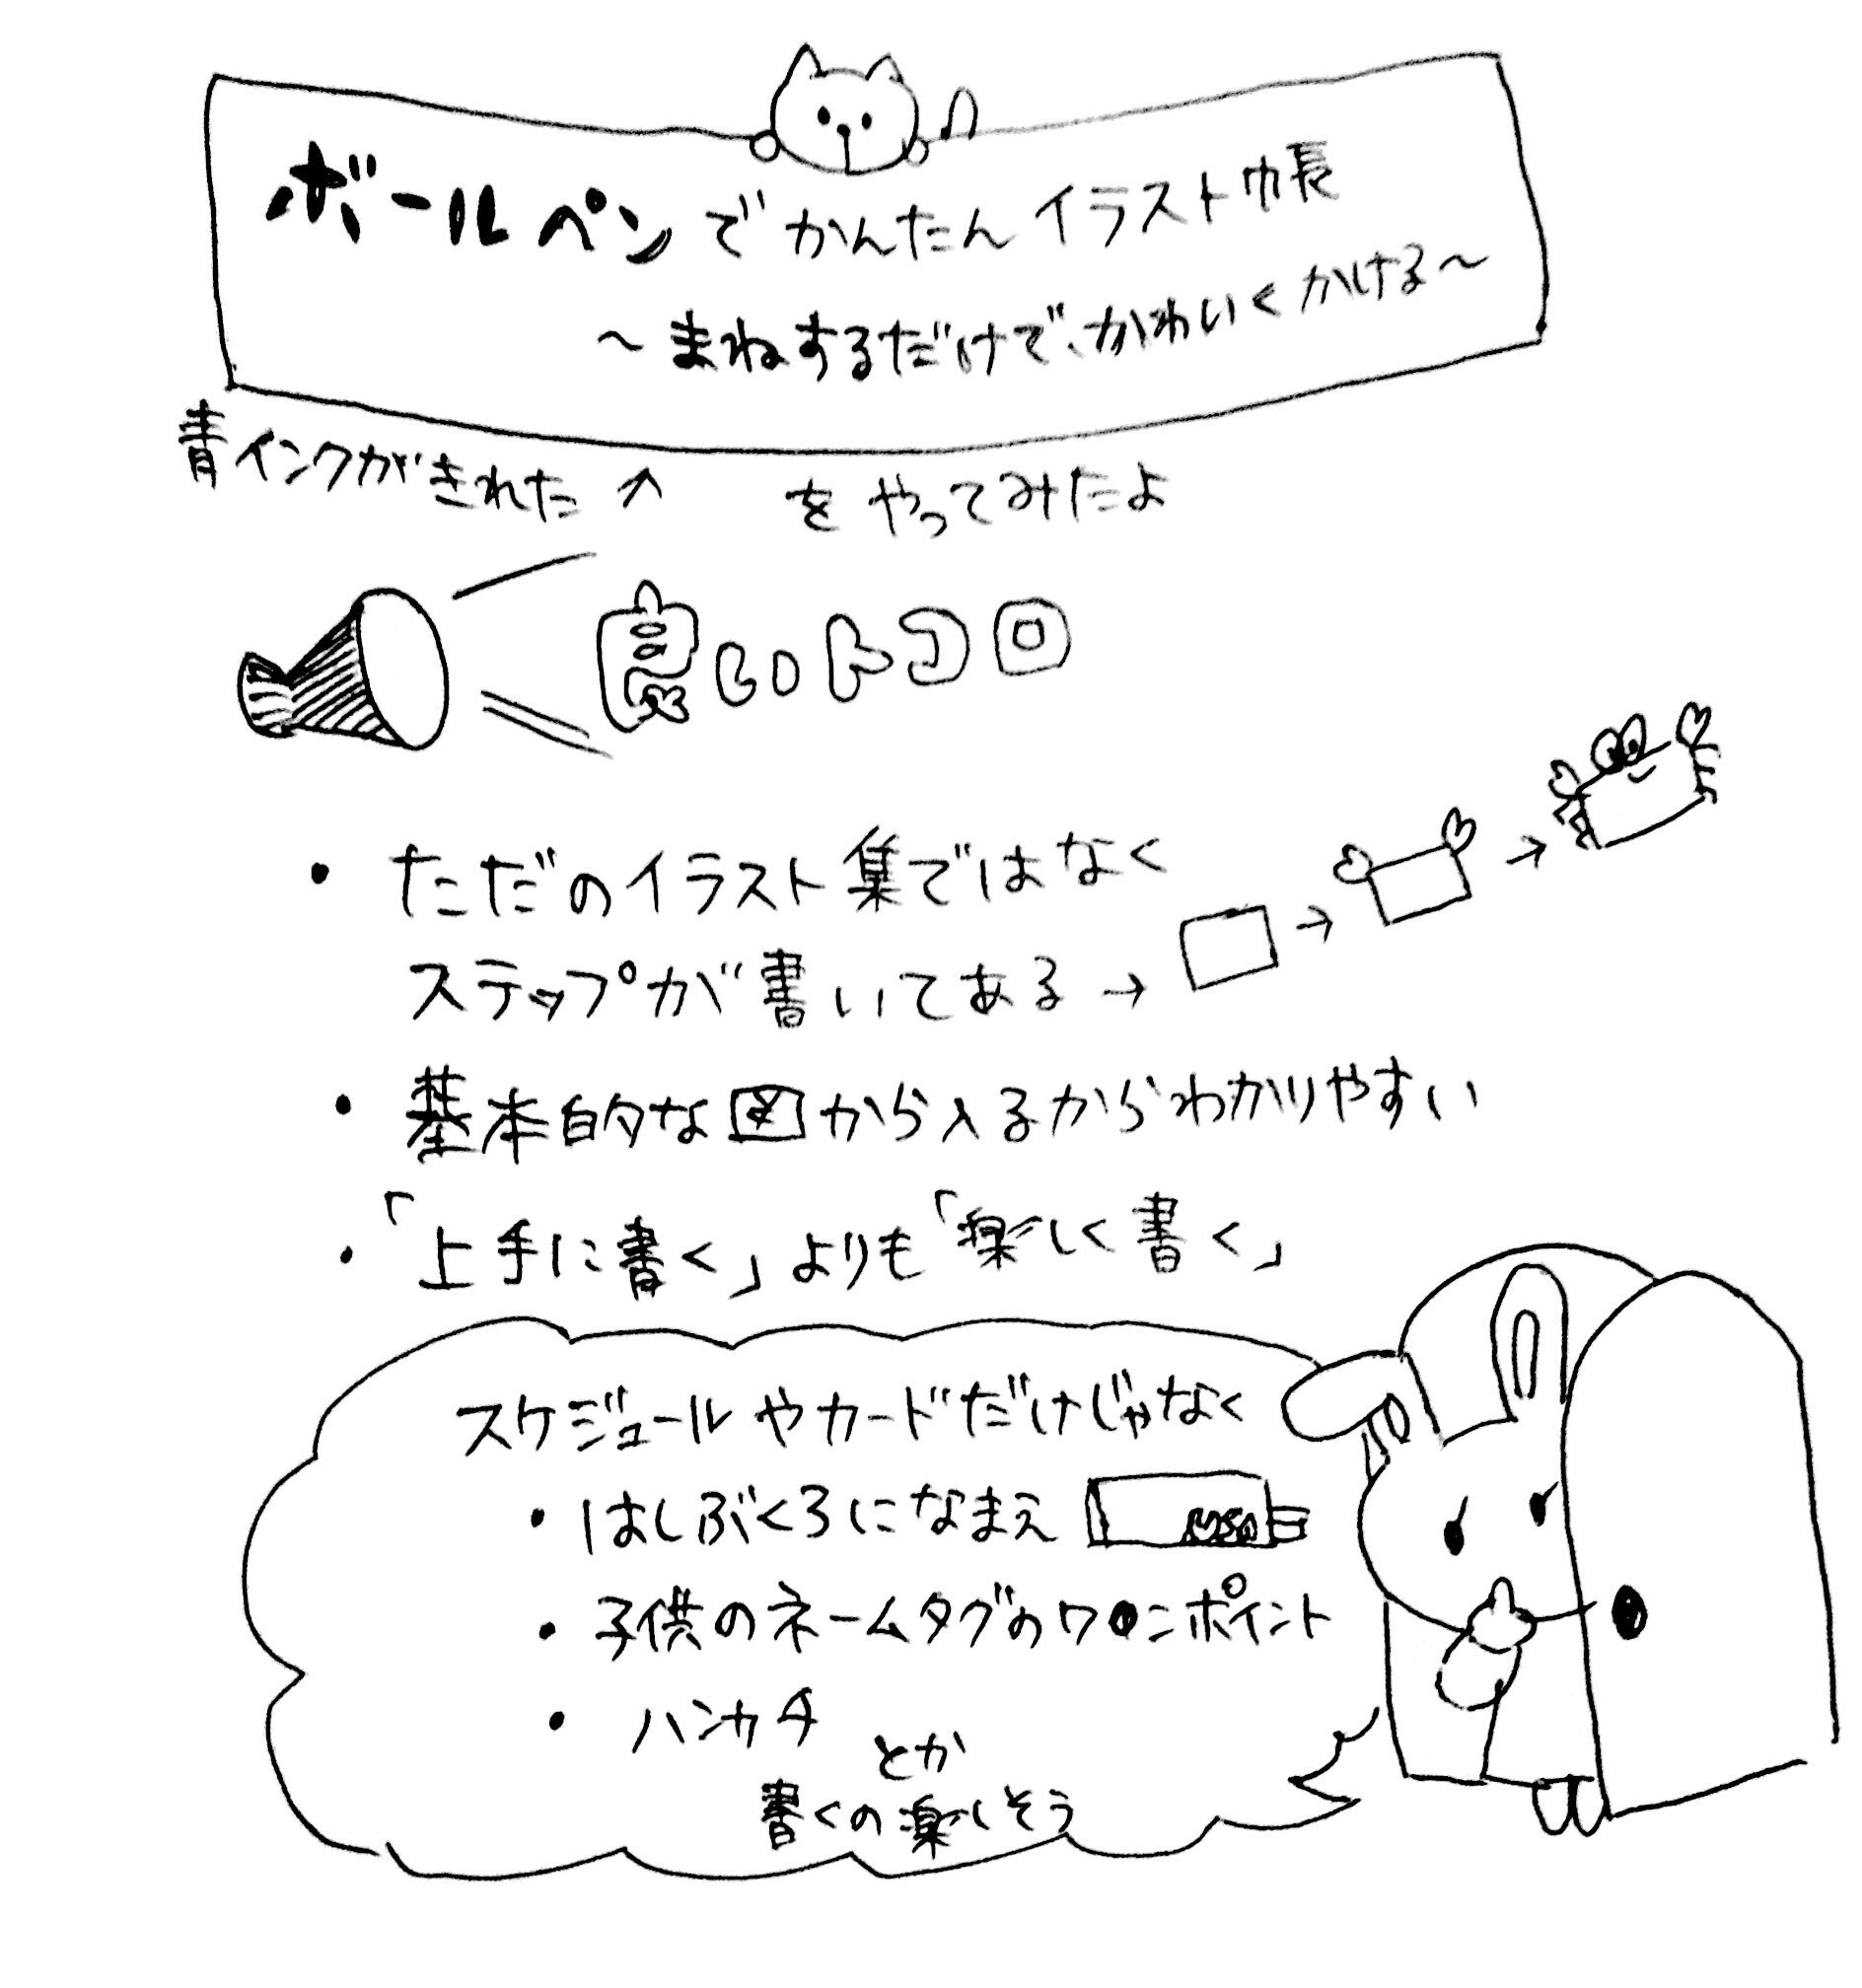 ボールペンでかんたんイラスト帳
～まねするだけで、かわいくかける～
青インクがきれた↑ をやってみたよ
良いトコロ
・ただのイラスト集ではなく
ステップが書いてある→
・基本的な図から入るからわかりやすい
・「上手に書く」よりも「楽しく書く」
スケジュールやカードだけじゃなく
・はしぶくろになまえ
・子供のネームタグのワンポイント
・ハンカチ
とか
書くの楽しそう